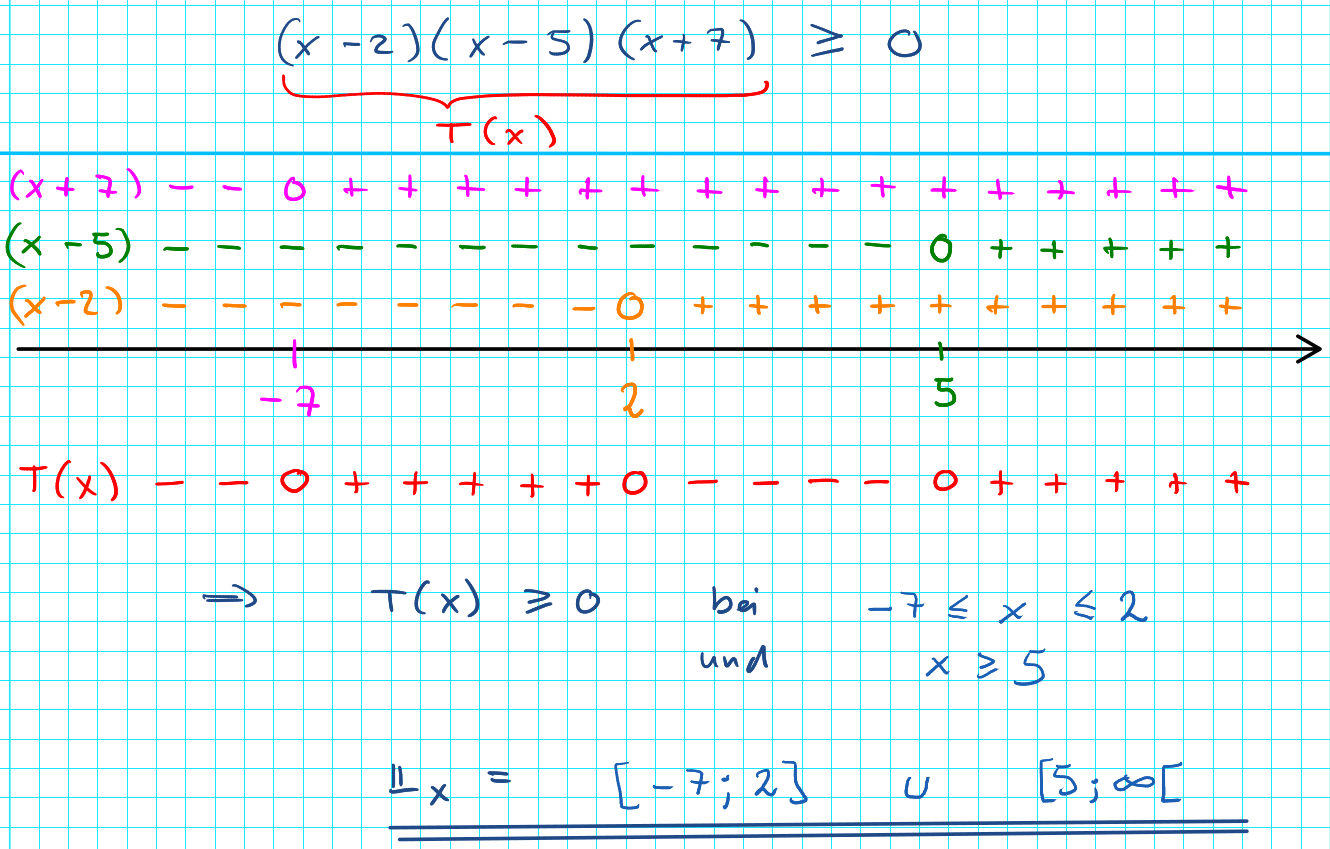 (x - 2)(x - 5)(x + 7) ≥ 0
T(x)
(x + 7) - - 0 + + + + + + + + + + + + + + + +
(x - 5) - - - - - - - - - - - - - 0 + + + + +
(x - 2) - - - - - - - - 0 + + + + + + + + + +
-7 2 5
T(x) - - 0 + + + + + 0 - - - - 0 + + + + +
⇒ T(x) ≥ 0 bei -7 ≤ x ≤ 2
und x ≥ 5
𝕃x = [-7; 2] ∪ [5; ∞[